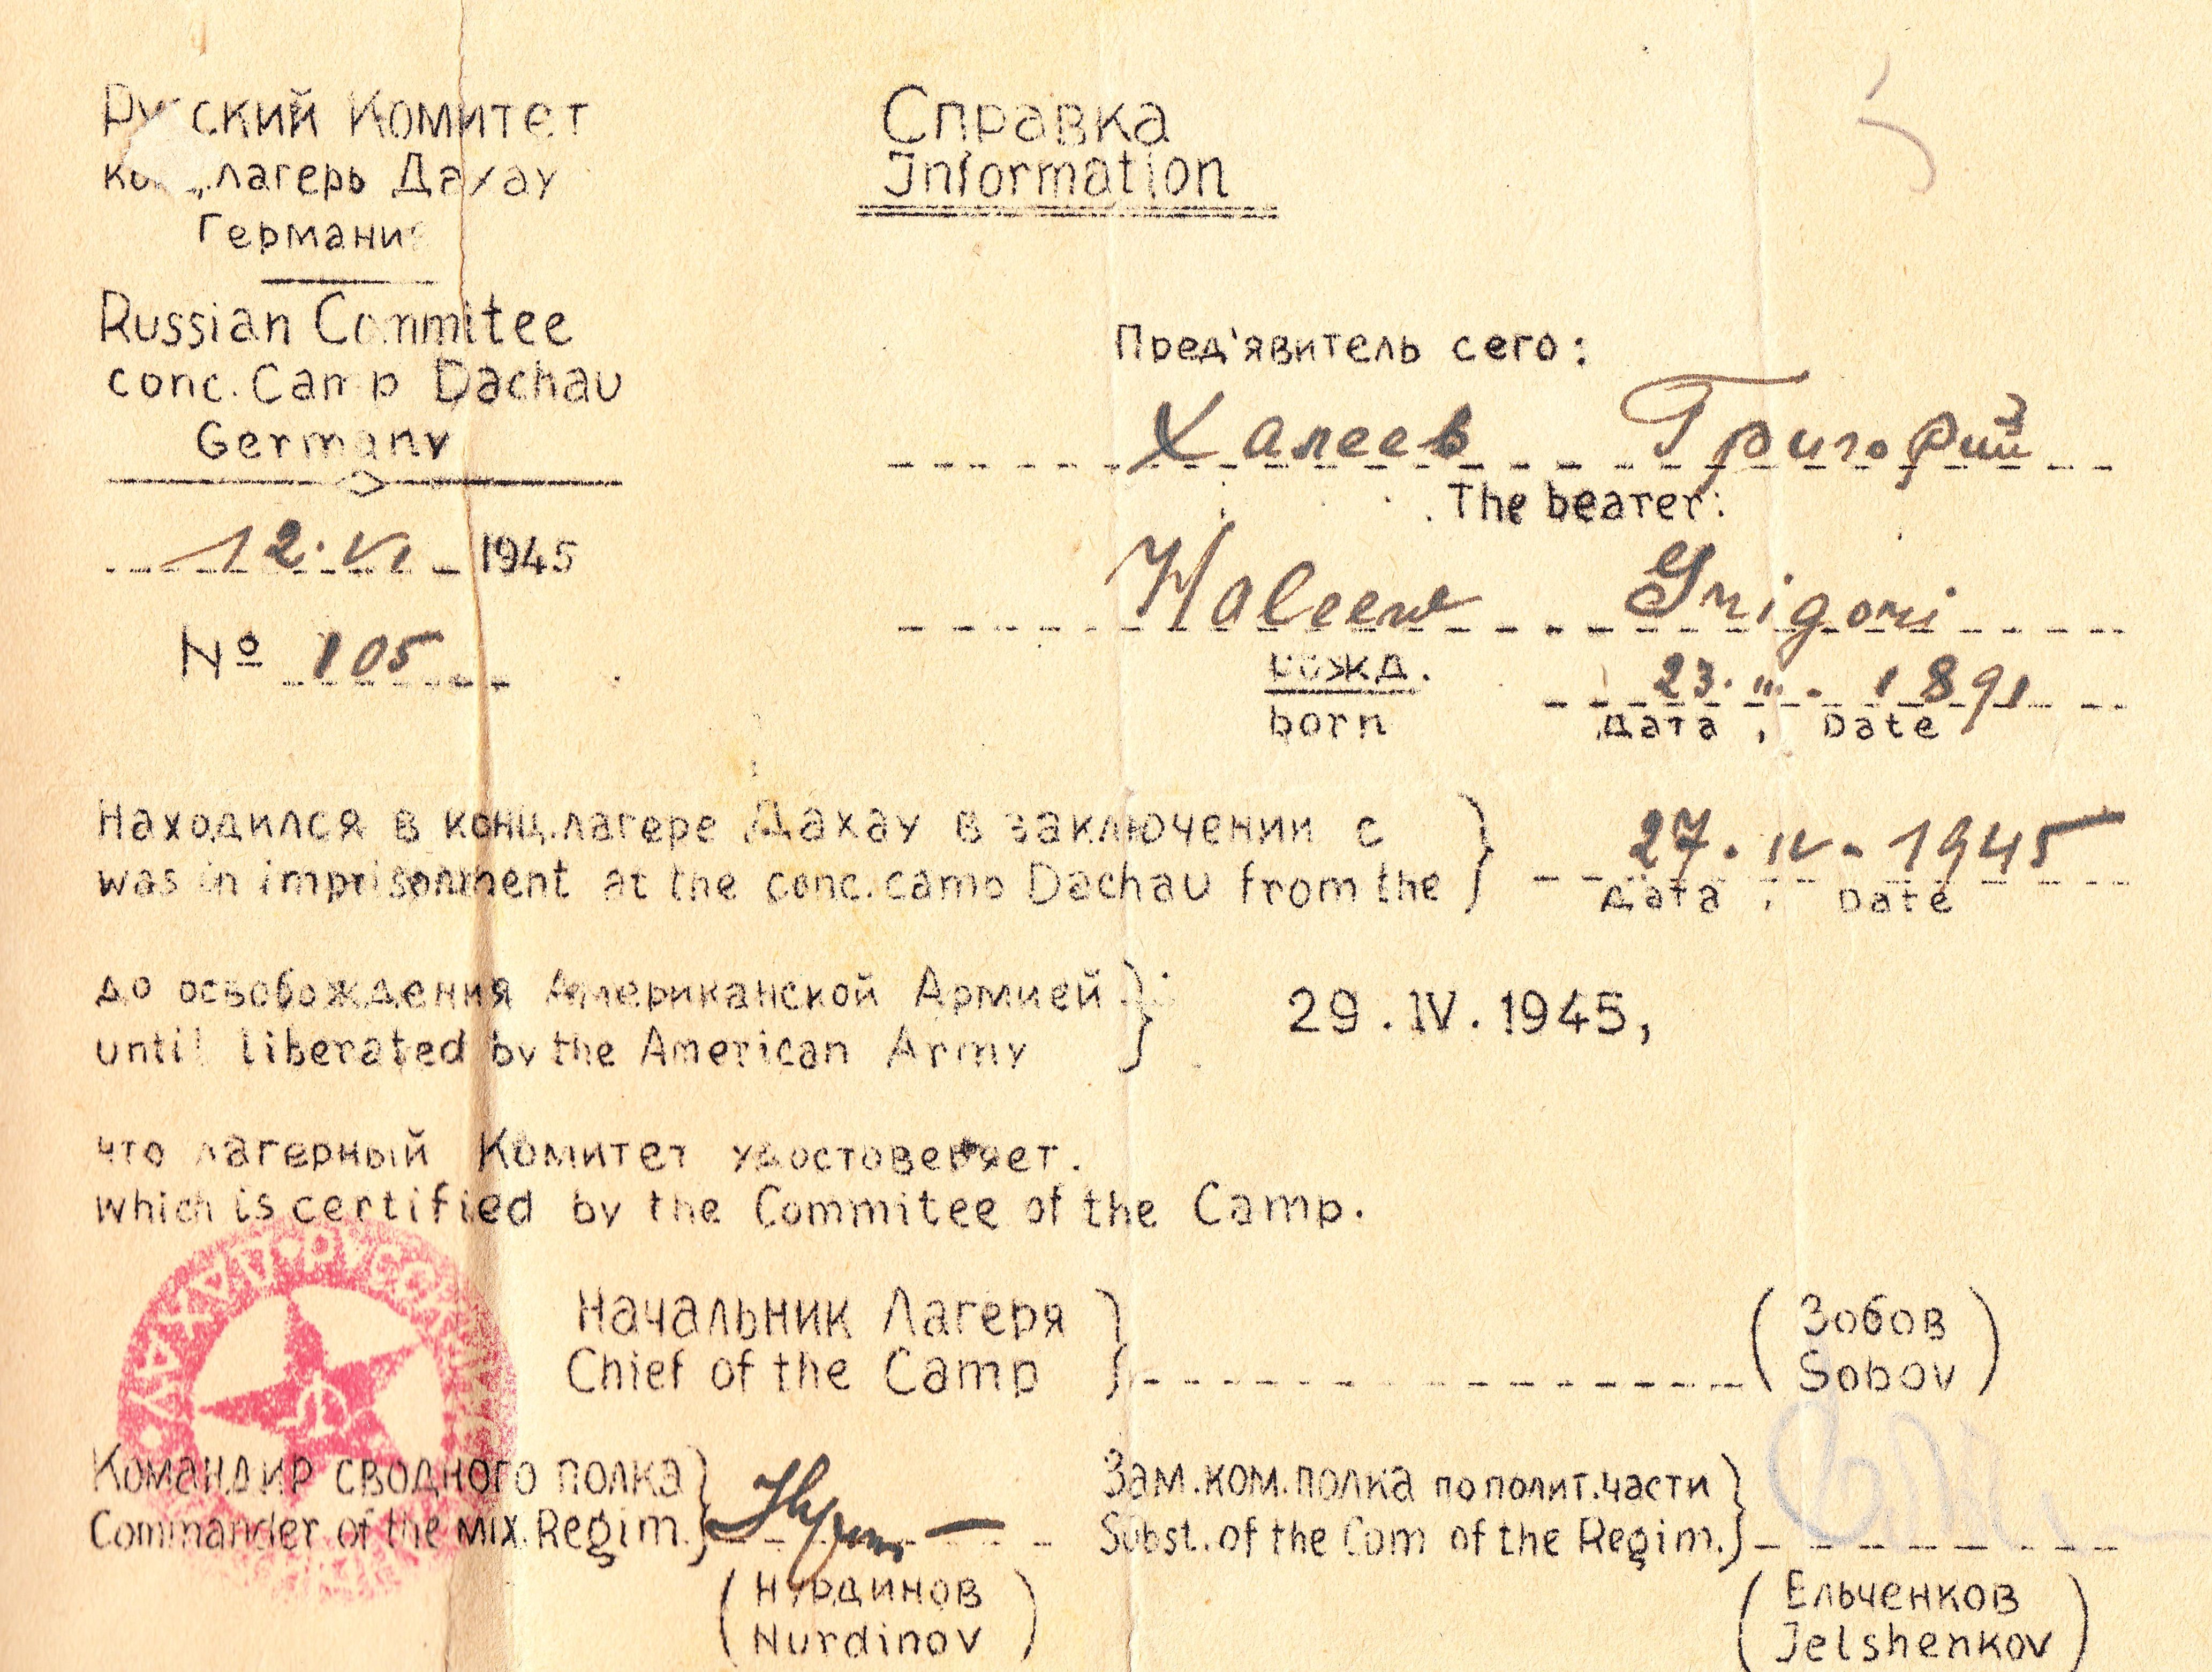 Русский Комитет
конц.лагерь Дахау
Германия
Russian Commitee
conc. Camp Dachau
Germany
12. VI 1945
№ 105
Справка
Information
Пред'явитель сего:
Халеев Григорий
The bearer:
Haleew Grigori
рожд.
born
23. III. 1891
Дата, Date
Находился в конц.лагере Дахау в заключении с
was in imprisonment at the conc. camp Dachau from the
27. IV. 1945
Дата, Date
до освобождения Американской Армией
until liberated by the American Army
29. IV. 1945,
что лагерный Комитет удостоверяет.
which is certified by the Commitee of the Camp.
Начальник Лагеря
Chief of the Camp
(Зобов
Sobov)
Командир сводного полка
Commander of the mix. Regim.
(Нурдинов
Nurdinov)
Зам.ком.полка по полит.части
Subst. of the Com of the Regim.
(Ельченков
Jelshenkov)